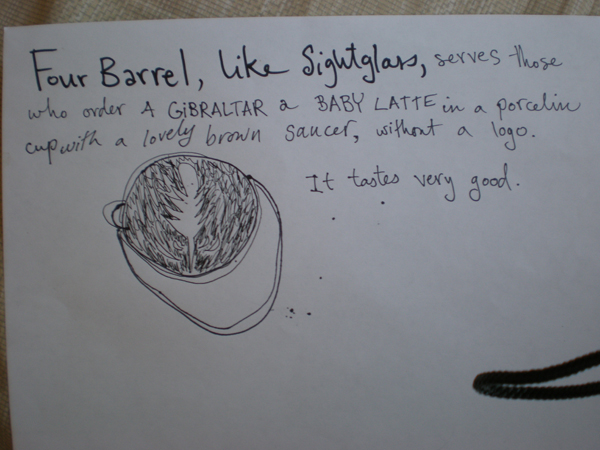 Four Barrel, like Sightglass, serves those
who order A GIBRALTAR a BABY LATTE in a porcelin
cup with a lovely brown saucer, without a logo.
It tastes very good.